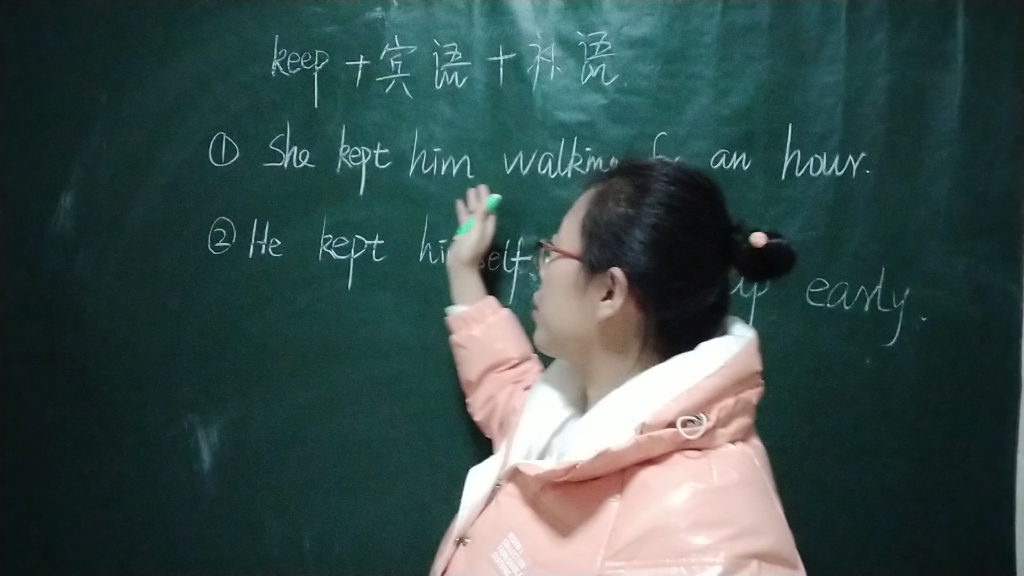 keep + 宾语 + 补语
① She kept him walking an hour.
② He kept himself up early.